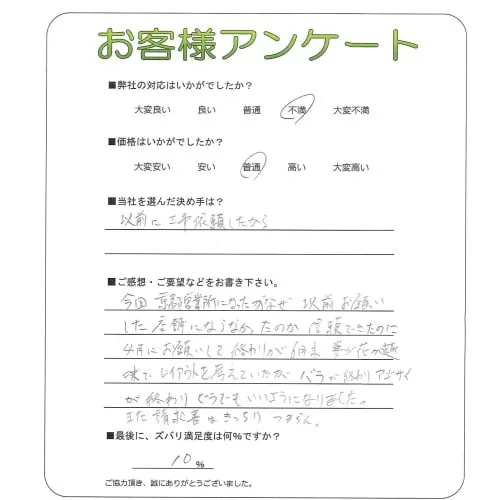 お客様アンケート
■弊社の対応はいかがでしたか？
大変良い 良い 普通 不満 大変不満
■価格はいかがでしたか？
大変安い 安い 普通 高い 大変高い
■当社を選んだ決め手は？
以前に工事依頼したから
■ご感想・ご要望などをお書き下さい。
今回 京都営業所になったがなぜ 以前お願い
した店舗にならなかったのか 信頼できたのに
4月にお願いして終わりが6月末 妻が花が趣
味でレイアウトを考えていたが バラが終わりアジサイ
が終わり どうでもいいようになりました。
また請求書はきっちり つまらん。
■最後に、ズバリ満足度は何％ですか？
10 %
ご協力頂き、誠にありがとうございました。